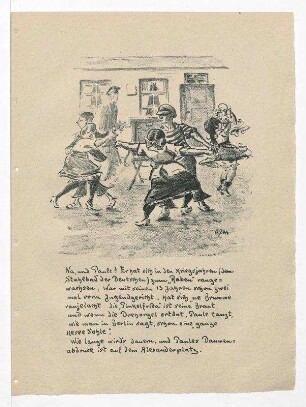 Na, und Paule! Er hat sich in den Kriegsjahren (dem
Stahlbad der Deutschen) zum "Raben" rausge-
wachsen, war mit seinen 13 Jahren schon zwei
mal vorm Jugendgericht, hat sich ne Brumme
angelacht die Pinkelfrieda ist seine Braut
und wenn die Drehorgel ertönt, Paule tanzt,
wie man in Berlin sagt, schon eine ganze
kerve Sohle!
Wie lange wirds dauern, und Paules Daumen-
abdruck ist auf dem Alexanderplatz.